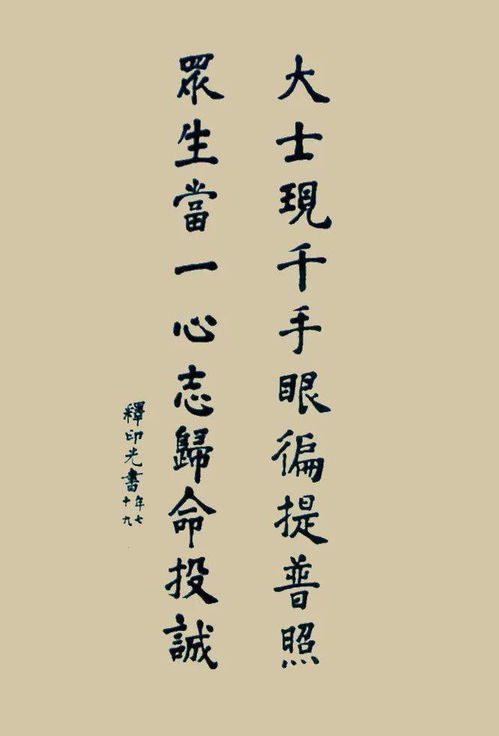 大士現千手眼徧提普照
眾生當一心志歸命投誠
釋印光書
年七十九